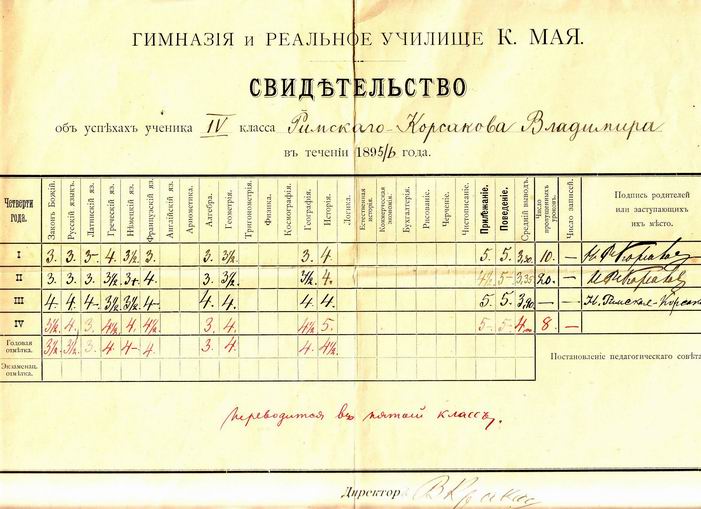 ГИМНАЗІЯ и РЕАЛЬНОЕ УЧИЛИЩЕ К. МАЯ.
СВИДѢТЕЛЬСТВО
объ успѣхахъ ученика IV класса Римскаго-Корсакова Владимира
въ теченіи 1895/6 года.
Четверти года. Законъ Божій. Русскій языкъ. Латинскій яз. Греческій яз. Нѣмецкій яз. Французскій яз. Англійскій яз. Ариѳметика. Алгебра. Геометрія. Тригонометрія. Физика. Космографія. Географія. Исторія. Логика. Естественная исторія. Коммерческая экономія. Бухгалтерія. Рисованіе. Черченіе. Чистописаніе. Прилѣжаніе. Поведеніе. Средній выводъ. Число пропущенныхъ уроковъ. Число записей. Подпись родителей или заступающихъ ихъ мѣсто.
I 3. 3. 3- 4. 3½ 3. 3. 3½. 3. 4. 5. 5. 3,50. 10. —
II 3. 3. 3. 3½ 3+ 4. 3. 3½. 3½. 4. 4½ 5- 3,35 20. —
III 4. 4. 4- 3½ 3½ 4- 4. 4. 4. 4. 5. 5. 3,90. — — Н. Римская-Корсак
IV 3½. 4. 3. 4½ 4. 4½ 3. 4. 4½ 5. 5- 5. 4,00 8. —
Годовая отмѣтка. 3½. 3½. 3. 4. 4- 4. 3. 4. 4. 4½.
Экзаменац. отмѣтка.
Постановленіе педагогическаго совѣта
Переводится въ пятый классъ.
Директоръ